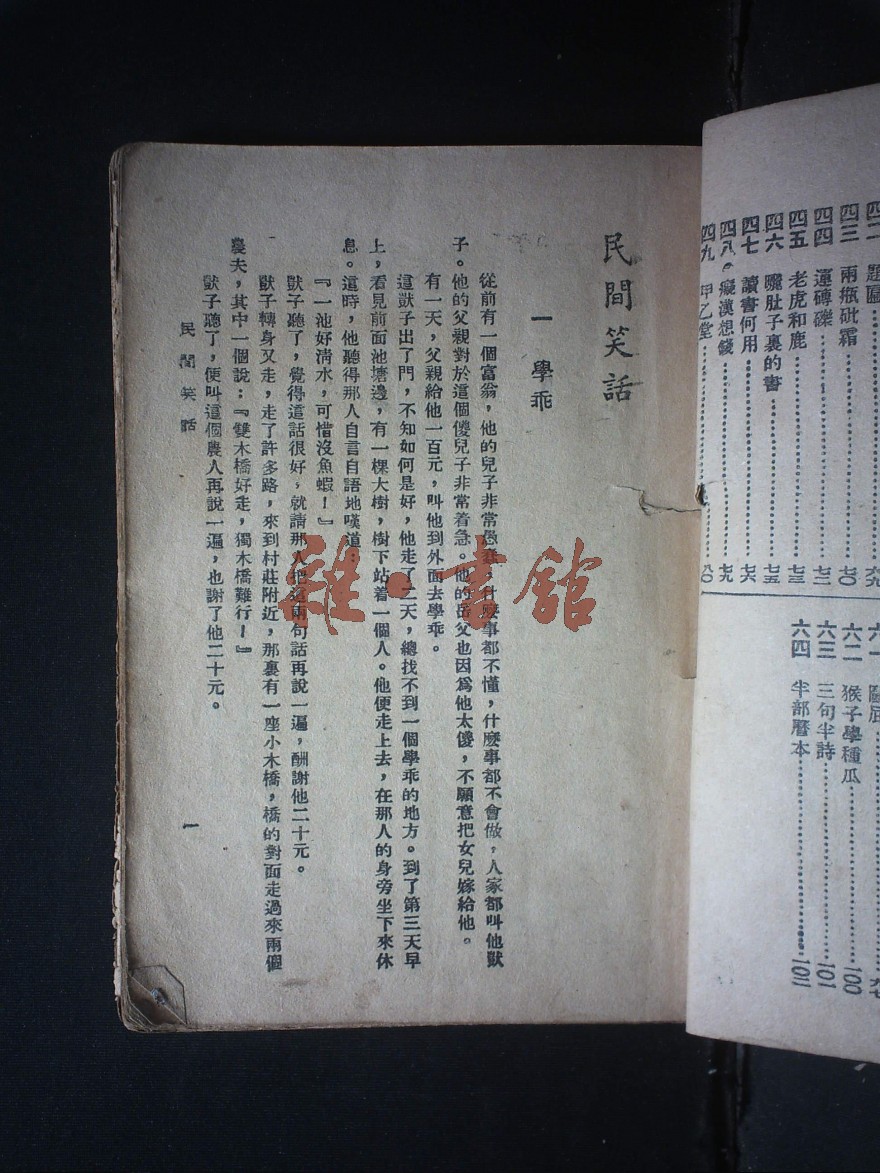 四三　兩瓶砒霜…………七〇
四四　運磚礫…………七二
四五　老虎和鹿…………七三
四六　曬肚子裏的書…………七五
四七　讀書何用…………七六
四八　癡漢想錢…………七九
四九　甲乙堂…………八〇
六二　猴子學種瓜…………一〇〇
六三　三句半詩…………一〇一
六四　半部曆本…………一〇二
民間笑話
一　學乖
從前有一個富翁，他的兒子非常愚蠢，什麼事都不懂，什麼事都不會做，人家都叫他獃
子。他的父親對於這個傻兒子非常着急。他的岳父也因爲他太傻，不願意把女兒嫁給他。
有一天，父親給他一百元，叫他到外面去學乖。
這獃子出了門，不知如何是好，他走了二天，總找不到一個學乖的地方。到了第三天早
上，看見前面池塘邊，有一棵大樹，樹下站着一個人。他便走上去，在那人的身旁坐下來休
息。這時，他聽得那人自言自語地嘆道：
『一池好清水，可惜沒魚蝦！』
獃子聽了，覺得這話很好，就請那人把這兩句話再說一遍，酬謝他二十元。
獃子轉身又走，走了許多路，來到村莊附近，那裏有一座小木橋，橋的對面走過來兩個
農夫，其中一個說：『雙木橋好走，獨木橋難行！』
獃子聽了，便叫這個農人再說一遍，也謝了他二十元。
民間笑話
一
雜·書館